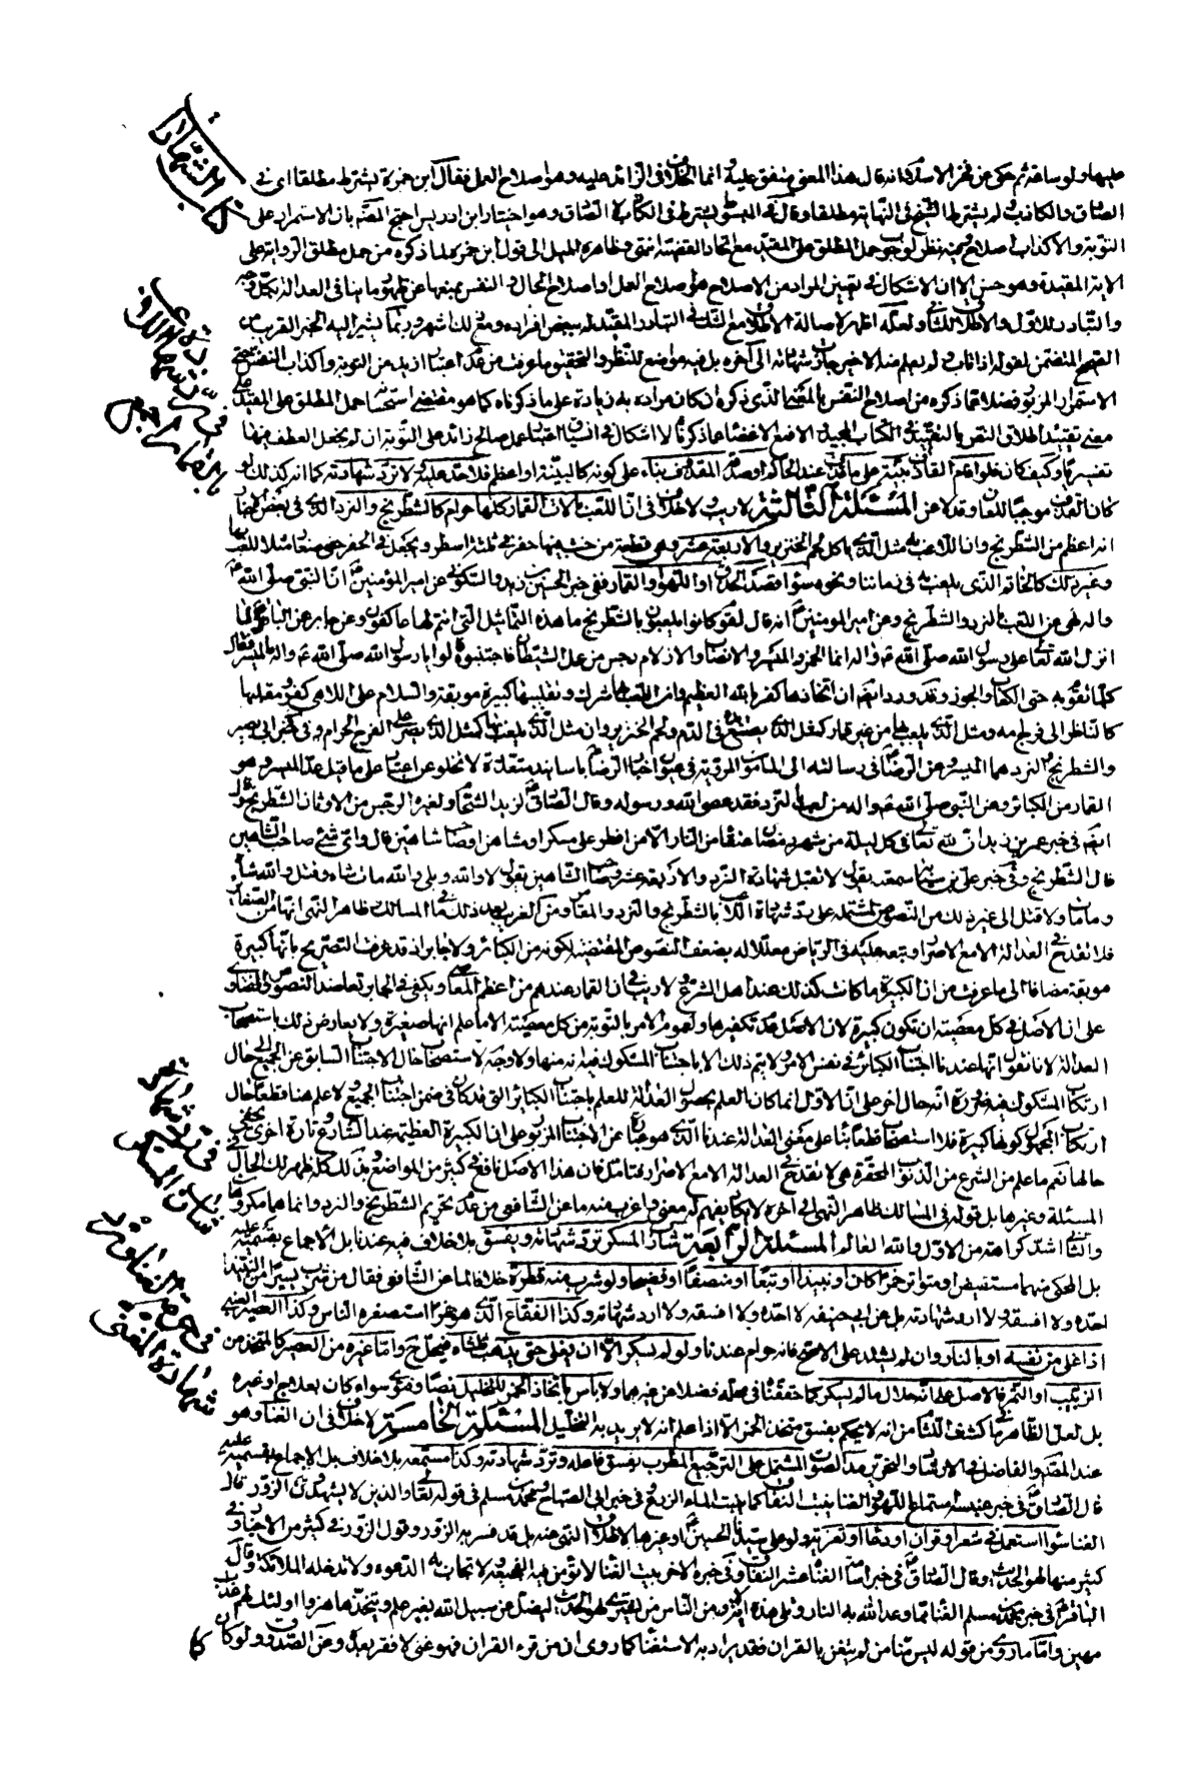 كتاب الشهادات
عليها ولو ساعة ثم حكى عن فخر الاسلام انه قال هذا المعنى متفق عليه وانما الخلاف في الزائد عليه وهو اصلاح العمل فقال ابن حمزة يشترط مطلقا اي في
الصادق والكاذب ولم يشترط الشيخ في النهاية مطلقا وقال في المبسوط يشترط في الكاذب لا الصادق وهو اختيار ابن ادريس احتج المصنف بان الاستمرار على
التوبة والاكذاب اصلاح وفيه نظر لوجوب حمل المطلق على المقيد مع اتحاد القضية انتهى وظاهره الميل الى قول ابن حمزة لما ذكره من حمل مطلق الرواية على
الاية المقيدة وهو حسن الا ان الاشكال في تعيين المراد من الاصلاح هو اصلاح العمل او اصلاح الحال والنفس بمنعها عن ظهور ما ينافي العدالة لكل وجه
والتبادر للاول والاطلاق للثاني ولعله اظهر لاصالة الاطلاق مع الشك في التبادر المقيد له ببعض افراده ومع ذلك اشهر وربما يشير اليه الخبر القريب من
الصحيح المتضمن لقوله اذا تاب ولم يعلم منه الا خير جازت شهادته الى آخره بل فيه مواضع للنظر والتحقيق ما عرفت من عدم اعتبار ازيد من التوبة واكذاب النفس حتى
الاستمرار المزبور فضلا عما ذكره من اصلاح النفس بالمعنى الذي ذكره ان كان مراده به زيادة على ما ذكرناه كما هو مقتضى استحسانه حمل المطلق على المقيد على
معنى تقييد اطلاق النص بالتقييد في الكتاب المجيد
تفسيريا وكيف كان فلو اقام القاذف بينة على ما قذف عند الحاكم او صدقه المقذوف بناء على كونه كالبينة او اعظم فلا حد عليه ولا ترد شهادته كما انه كذلك لو
كان القذف موجبا للعان وقد لاعن المسئلة الثالثة لا ريب ولا خلاف في ان اللعب بآلات القمار كلها حرام كالشطرنج والنرد الذي في بعض النصوص
انه اعظم من الشطرنج وان اللاعب به مثل الذي ياكل لحم الخنزير والاربعة عشر وهي قطعة من خشب فيها حفر في ثلثة اسطر ويجعل في الحفر حصى صغار مثلا للعب بها
وغير ذلك كالخاتم الذي يلعب به في زماننا ونحوه سواء قصد الحذق او اللهو او القمار ففي خبر الحسين بن زيد والسكوني عن امير المؤمنين ان النبي صلى الله عليه
وآله نهى عن اللعب بالنرد والشطرنج وعن امير المومنين انه قال لقوم كانوا يلعبون بالشطرنج ما هذه التماثيل التي انتم لها عاكفون وعن جابر عن الباقر لما
انزل الله تعالى على رسول الله صلى الله عليه وآله انما الخمر والميسر والانصاب والازلام رجس من عمل الشيطان فاجتنبوه قالوا يا رسول الله صلى الله عليه وآله ما الميسر فقال
كلما تقومر به حتى الكعاب والجوز وقد ورد ايضا ان اتخاذها كفر بالله العظيم وان اللعب بها شرك وتقليبها كبيرة موبقة والسلام على اللاهي كفر ومقلبها
كالناظر الى فرج امه ومثل الذي يلعب بها من غير قمار كمثل الذي يضع يده في الدم ولحم الخنزير وان مثل الذي يلعب بها كمثل الذي يصر على الفرج الحرام وفي خبر ابي بصير
والشطرنج والنرد هما الميسر وعن الرضا في رسالته الى المأمون المروية في عيون اخبار الرضا باسانيد متعددة لا تخلو عن اعتبار على ما قيل عد الميسر وهو
القمار من الكبائر وعن النبي صلى الله عليه وآله من لعب بالنرد فقد عصى الله ورسوله وقال الصادق لزيد الشحام ولغيره الرجس من الاوثان الشطرنج وقال
ايضا في خبر عمر بن يزيد ان لله تعالى في كل ليلة من شهر رمضان عتقاء من النار الا من افطر على مسكر او مشاحن او صاحب شاهين قال واي شئ صاحب الشاهين
قال الشطرنج وفي خبر علي بن سيابة سمعه يقول لا تقبل شهادة النرد والاربعة عشر وصاحب الشاهين يقول لا والله وبلى والله مات شاه وقتل والله شاه
وما مات ولا قتل الى غير ذلك من النصوص المشتملة على رد شهادة اللاعب بالشطرنج والنرد والمقامر ومن الغريب بعد ذلك ما في المسالك ظاهر النهي انها من الصغائر
فلا تقدح في العدالة الا مع الاصرار وتبعه عليه في الرياض معللا له بضعف النصوص المقتضية لكونه من الكبائر ولا جابر اذ قد عرفت التصريح بانها كبيرة
موبقة مضافا الى ما عرفت من ان الكبيرة ما كانت كذلك عند اهل الشرع ولا ريب في ان القمار عندهم من اعظم المعاصي ويكفي في الجابر تعاضد النصوص
على ان الاصل في كل معصية ان تكون كبيرة لان الاصل عدم تكفيرها ولعموم الامر بالتوبة من كل معصية الا ما علم انها صغيرة ولا يعارض ذلك باستصحاب
العدالة لانا نقول انها عندنا اجتناب الكبائر في نفس الامر ولا يتم ذلك الا باجتناب المشكوك فيه انه منها ولا وجه لاستصحاب حال الاجتناب السابق عن الجميع الى حال
ارتكاب المشكوك فيه ضرورة انه حال آخر على ان الاول انما كان العلم بحصول العدالة للعلم باجتناب الكبائر التي قد كان في ضمن اجتناب الجميع ولا علم هنا قطعا حال
ارتكاب المجهول كونها كبيرة فلا استصحاب قطعا بناء على معنى العدالة عندنا الذي هو عبارة عن الاجتناب المزبور على ان الكبيرة العظيمة عند الشارع تارة اخرى يخفى
حالها نعم ما علم من الشرع من الذنوب المحقرة هي لا تقدح في العدالة الا مع الاصرار فتامل فان هذا الاصل نافع في كثير من المواضع وبذلك كله ظهر لك الحال في
المسئلة وغيرها بل قوله في المسالك ظاهر النهي الى آخره لا يكاد يفهم له معنى واغرب منه ما عن الشافعي من عدم تحريم الشطرنج والنرد وانما هما مكروهان
والثاني اشد كراهة من الاول والله العالم المسئلة الرابعة شارب المسكر ترد شهادته ويفسق بلا خلاف فيه عندنا بل الاجماع بقسميه عليه
بل المحكي منهما مستفيض او متواتر خمرا كان او نبيذا او بتعا او منصفا او فضيخا ولو شرب منه قطرة خلافا لما عن الشافعي فقال من شرب يسيرا من النبيذ
احده ولا افسقه ولا ارد شهادته بل عن ابي حنيفة لا احده ولا افسقه ولا ارد شهادته وكذا الفقاع الذي هو خمر استصغره الناس وكذا العصير العنبي
اذا غلى من نفسه او بالنار وان لم يشتد على الاصح فانه حرام عندنا ولو لم يسكر الا ان يغلى حتى يذهب ثلثاه فيحل ح واما غيره من العصير كالمتخذ من
الزبيب او التمر فالاصل على انه حلال ما لم يسكر كما حققناه في محله فضلا عن غيرهما ولا باس باتخاذ الخمر للتخليل نصا وفتوى سواء كان بعلاج او غيره
بل لعل الظاهر كما كشف اللثام من انه لا يحكم بفسق متخذ الخمر الا اذا علم انه لا يريد به التخليل المسئلة الخامسة لا خلاف في ان الغناء وهو
عند المصنف والفاضل في الارشاد والتحرير مد الصوت المشتمل على الترجيع المطرب يفسق فاعله وترد شهادته وكذا مستمعه بلا خلاف بل الاجماع بقسميه عليه
قال الصادق في خبر عنبسة استماع اللهو والغناء ينبت النفاق كما ينبت الماء الزرع في خبر ابي الصباح ومحمد بن مسلم في قوله تعالى والذين لا يشهدون الزور قال
الغناء سواء استعمل في شعر او قرآن او دعاء او تعزية ولو على سيدنا الحسين او غيرها لاطلاق النهي عنه بل قد فسر به الزور وقول الزور في كثير من الاخبار وفي
كثير منها لهو الحديث وقال الصادق في خبر ابي اسامة الغناء عش النفاق وفي خبره الآخر بيت الغناء لا تؤمن فيه الفجيعة ولا تجاب فيه الدعوة ولا تدخله الملائكة وقال
الباقر في خبر محمد بن مسلم الغناء مما وعد الله به النار وتلى هذه الآية ومن الناس من يشتري لهو الحديث ليضل عن سبيل الله بغير علم ويتخذها هزوا اولئك لهم عذاب
مهين واما ما روي من قوله ليس منا من لم يتغن بالقران فقد يراد به الاستغناء كما روى ان من قرء القران فهو غنى لا فقر بعده وعن الصدوق ولو كان
كما
في رد شهادة اللاعب
بالقمار اجمع
في رد شهادة
شارب المسكر
في حرمة الغناء ورد
شهادة المغني